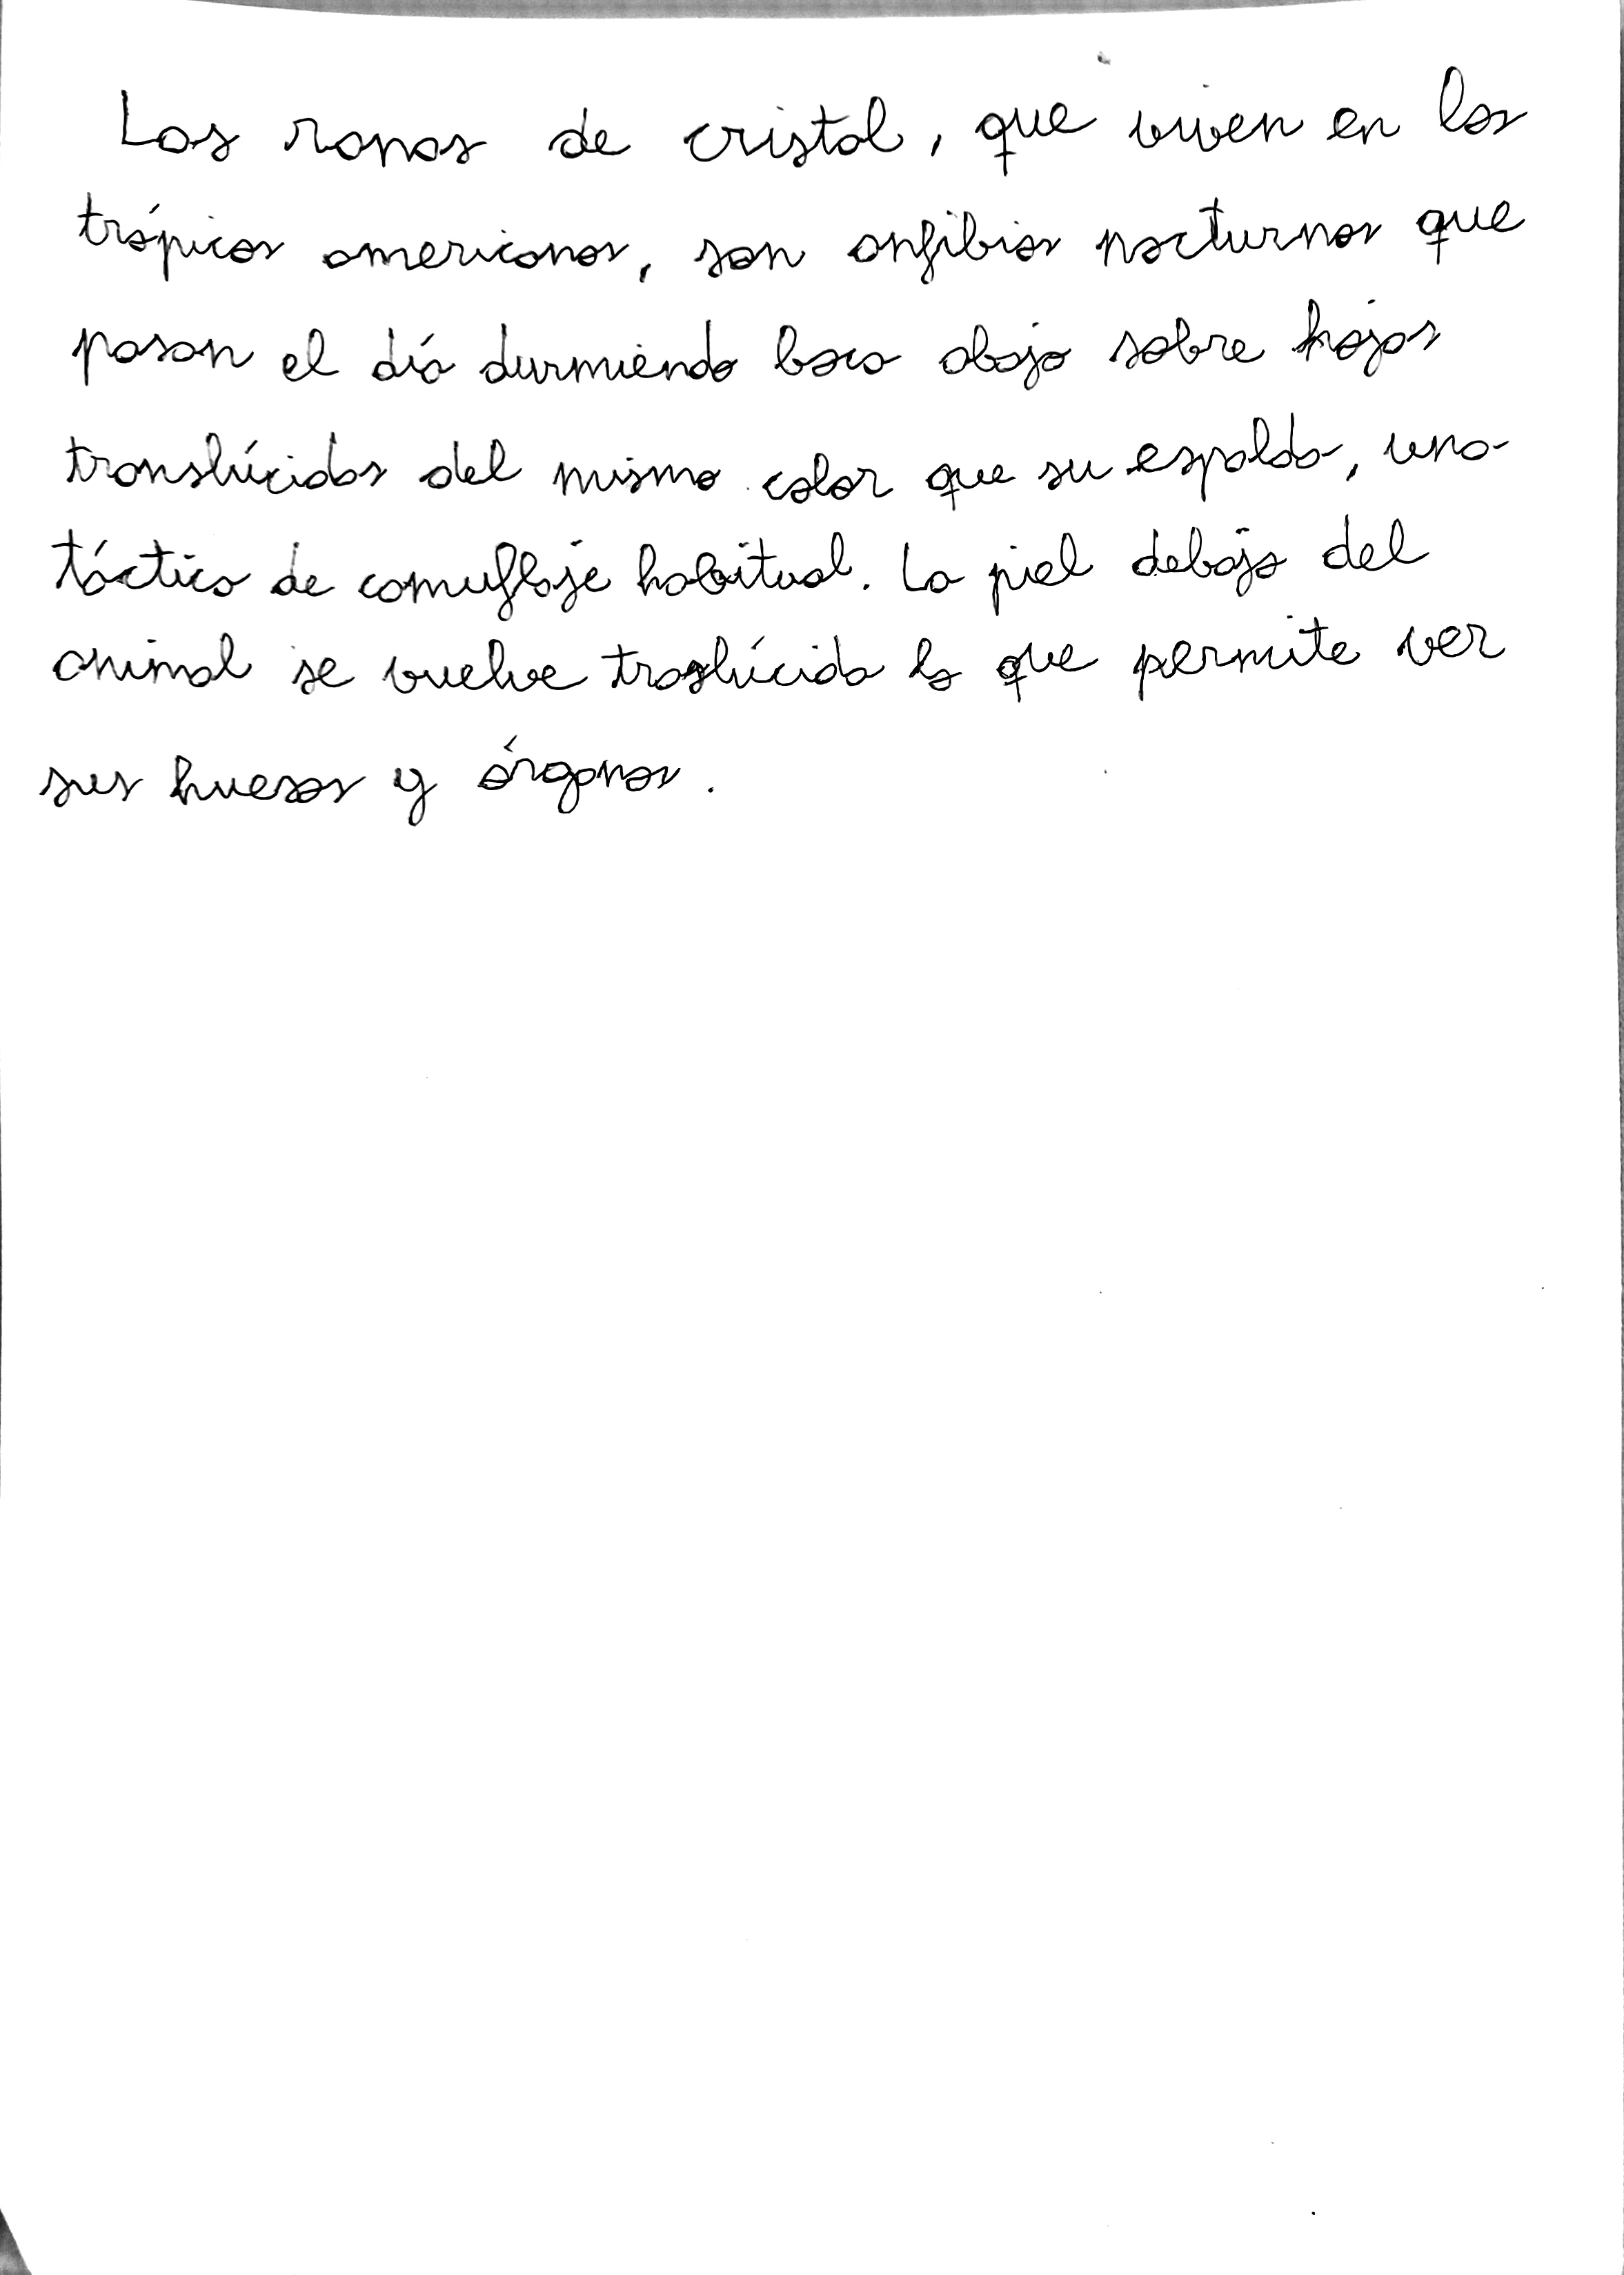 Las ranas de cristal, que viven en los
trópicos americanos, son anfibios nocturnos que
pasan el día durmiendo boca abajo sobre hojas
translúcidas del mismo color que su espalda, una
táctica de camuflaje habitual. La piel debajo del
animal se vuelve traslúcida lo que permite ver
sus huesos y órganos.